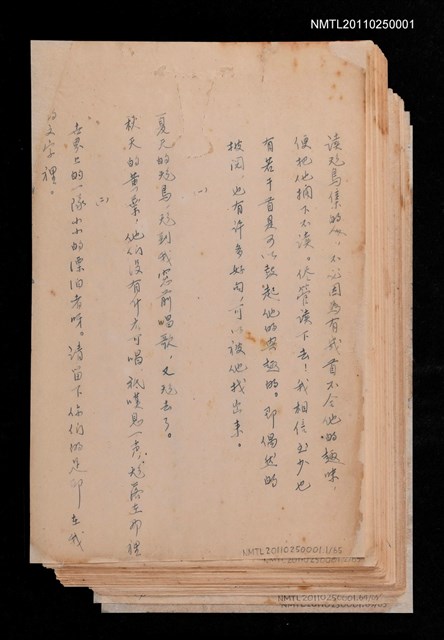 NMTL20110250001
讀飛鳥集的人,不必因為有幾首不合他的趣味,
便把他擱下不讀。儘管讀下去!我相信至少也
有若干首是可以鼓起他的興趣的。即偶然的
披閱,也有許多好句,可以被他找出來。
(一)
夏天的飛鳥,飛到我窗前唱歌,又飛去了。
秋天的黃葉,他們沒有什麼可唱,祇嘆息一聲,飛落在那裡
(二)
世界上的一隊小小的漂泊者呀。請留下你們的足印在我
的文字裡。
NMTL20110250001.1/65
NMTL20110250001.64/65